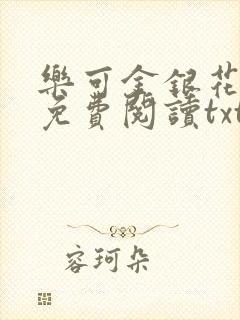 樂可金銀花
免費閱讀txt
容珂朵